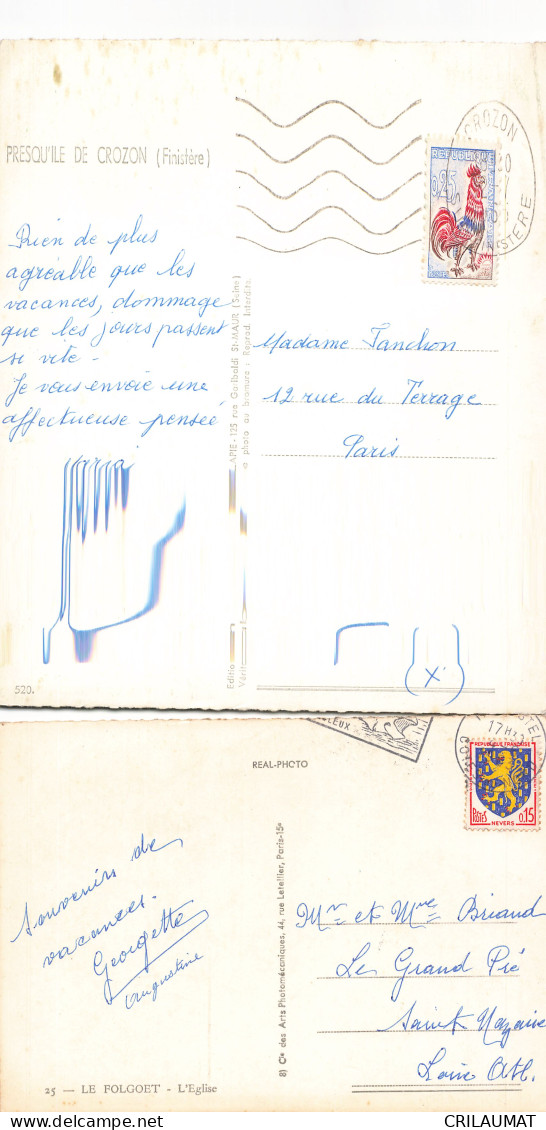 PRESQU'ILE DE CROZON (Finistère)
CROZON
FINISTERE
REPUBLIQUE
0,25
Rien de plus
agréable que les
vacances, dommage
que les jours passent
si vite -
Je vous envoie une
affectueuse pensée
Maria
Madame Fanchon
12 rue du Terrage
Paris
125 rue Garibaldi St-MAUR (Seine)
photo au bromure - Reprod. Interdite
520.
(X)
17H
REAL-PHOTO
REPUBLIQUE FRANÇAISE
POSTES
0,15
NEVERS
Souvenirs de
vacances.
Georgette
Augustine
8) Cie des Arts Photomécaniques, 44, rue Letellier, Paris-15e
Mr et Mme Briand
Le Grand Pré
Saint Nazaire
Loire Atl.
25 — LE FOLGOET - L'Eglise
CRILAUMAT